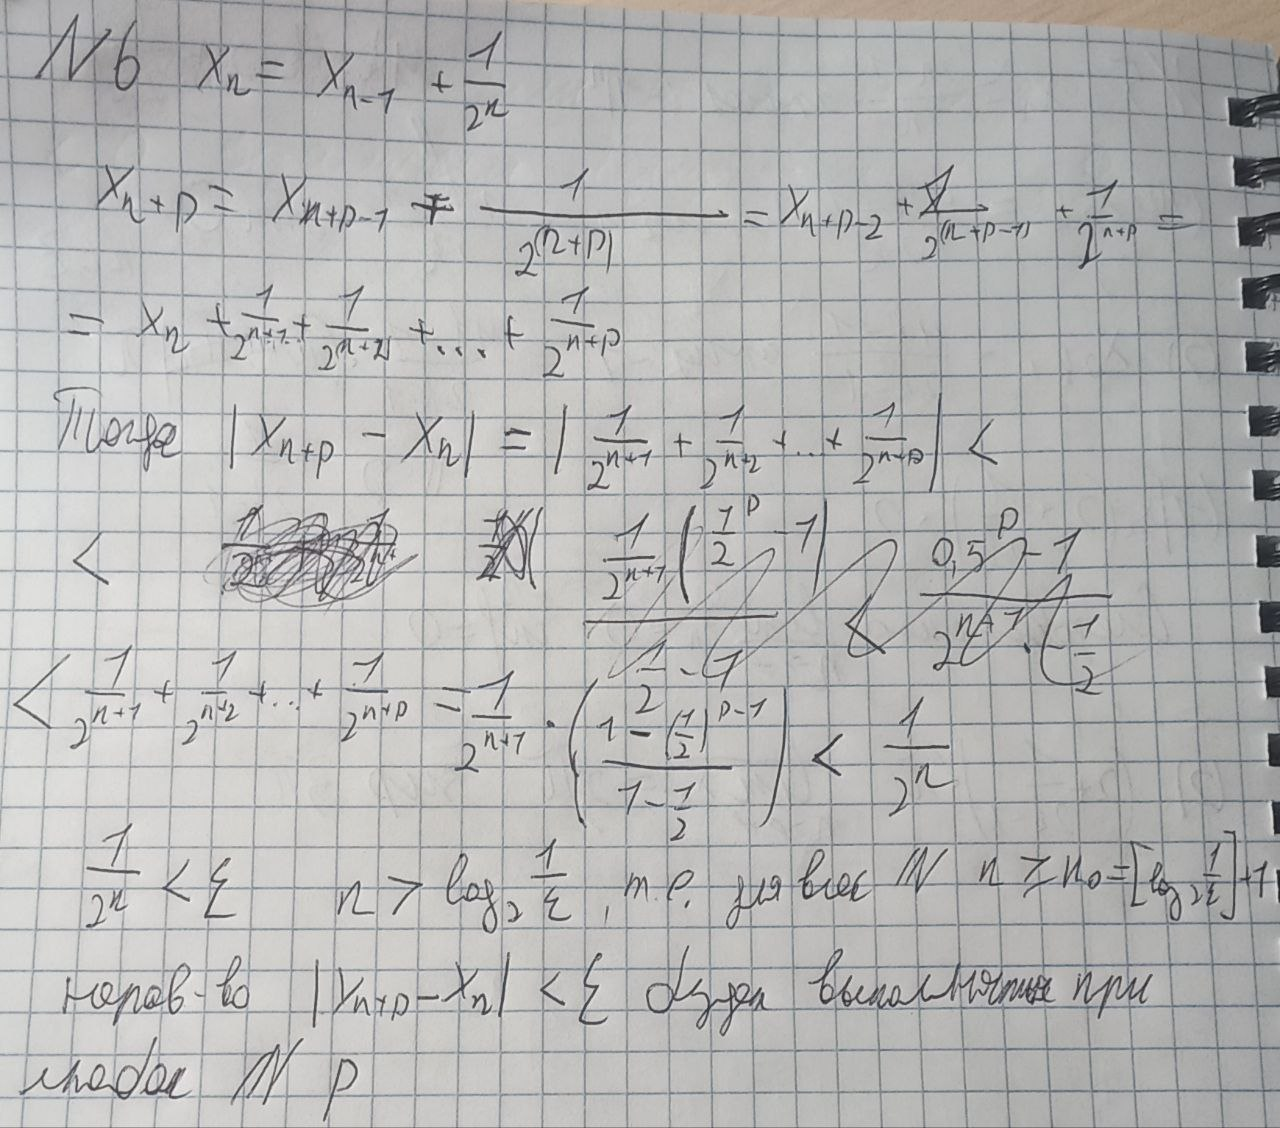 N6 xₙ = xₙ₋₁ + 1/2ⁿ
x_{n+p} = x_{n+p-1} + 1/2^{(n+p)} = x_{n+p-2} + 1/2^{(n+p-1)} + 1/2^{n+p} =
= xₙ + 1/2^{n+1} + 1/2^{(n+2)} + ... + 1/2^{n+p}
Тогда |x_{n+p} - xₙ| = | 1/2^{n+1} + 1/2^{n+2} + ... + 1/2^{n+p} | <
<
< 1/2^{n+1} + 1/2^{n+2} + ... + 1/2^{n+p} = 1/2^{n+1} · ( (1 - (1/2)^{p-1}) / (1 - 1/2) ) < 1/2ⁿ
1/2ⁿ < Ɛ n > log₂ 1/Ɛ, т.е. для всех N n ≥ n₀ = [log₂ 1/Ɛ] + 1
нерав-во |x_{n+p} - xₙ| < Ɛ будет выполняться при
любых N p